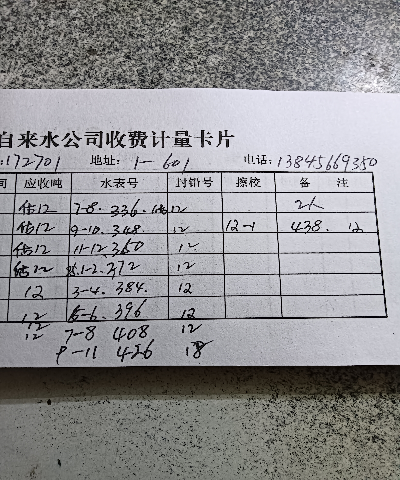 自来水公司收费计量卡片
:172701 地址: 1-601 电话: 13845669350
间 应收吨 水表号 封铅号 擦校 备 注
估12 7-8. 336. 估12 2人
估12 9-10. 348. 12 12-1 438. 12
估12 11-12. 360 12
估12 25.1-2. 372 12
12 3-4. 384. 12
12 5-6. 396 12
12 7-8 408 12
9-11 426 18